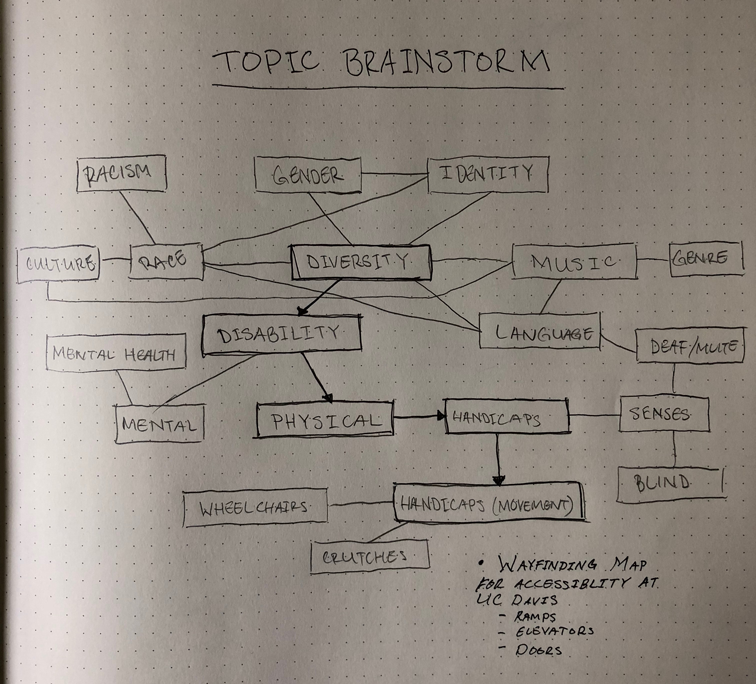 TOPIC BRAINSTORM
RACISM
GENDER
IDENTITY
CULTURE
RACE
DIVERSITY
MUSIC
GENRE
DISABILITY
LANGUAGE
MENTAL HEALTH
DEAF/MUTE
MENTAL
PHYSICAL
HANDICAPS
SENSES
BLIND
WHEELCHAIRS
HANDICAPS (MOVEMENT)
CRUTCHES
• WAYFINDING MAP
FOR ACCESSIBLITY AT
UC DAVIS
- RAMPS
- ELEVATORS
- DOORS